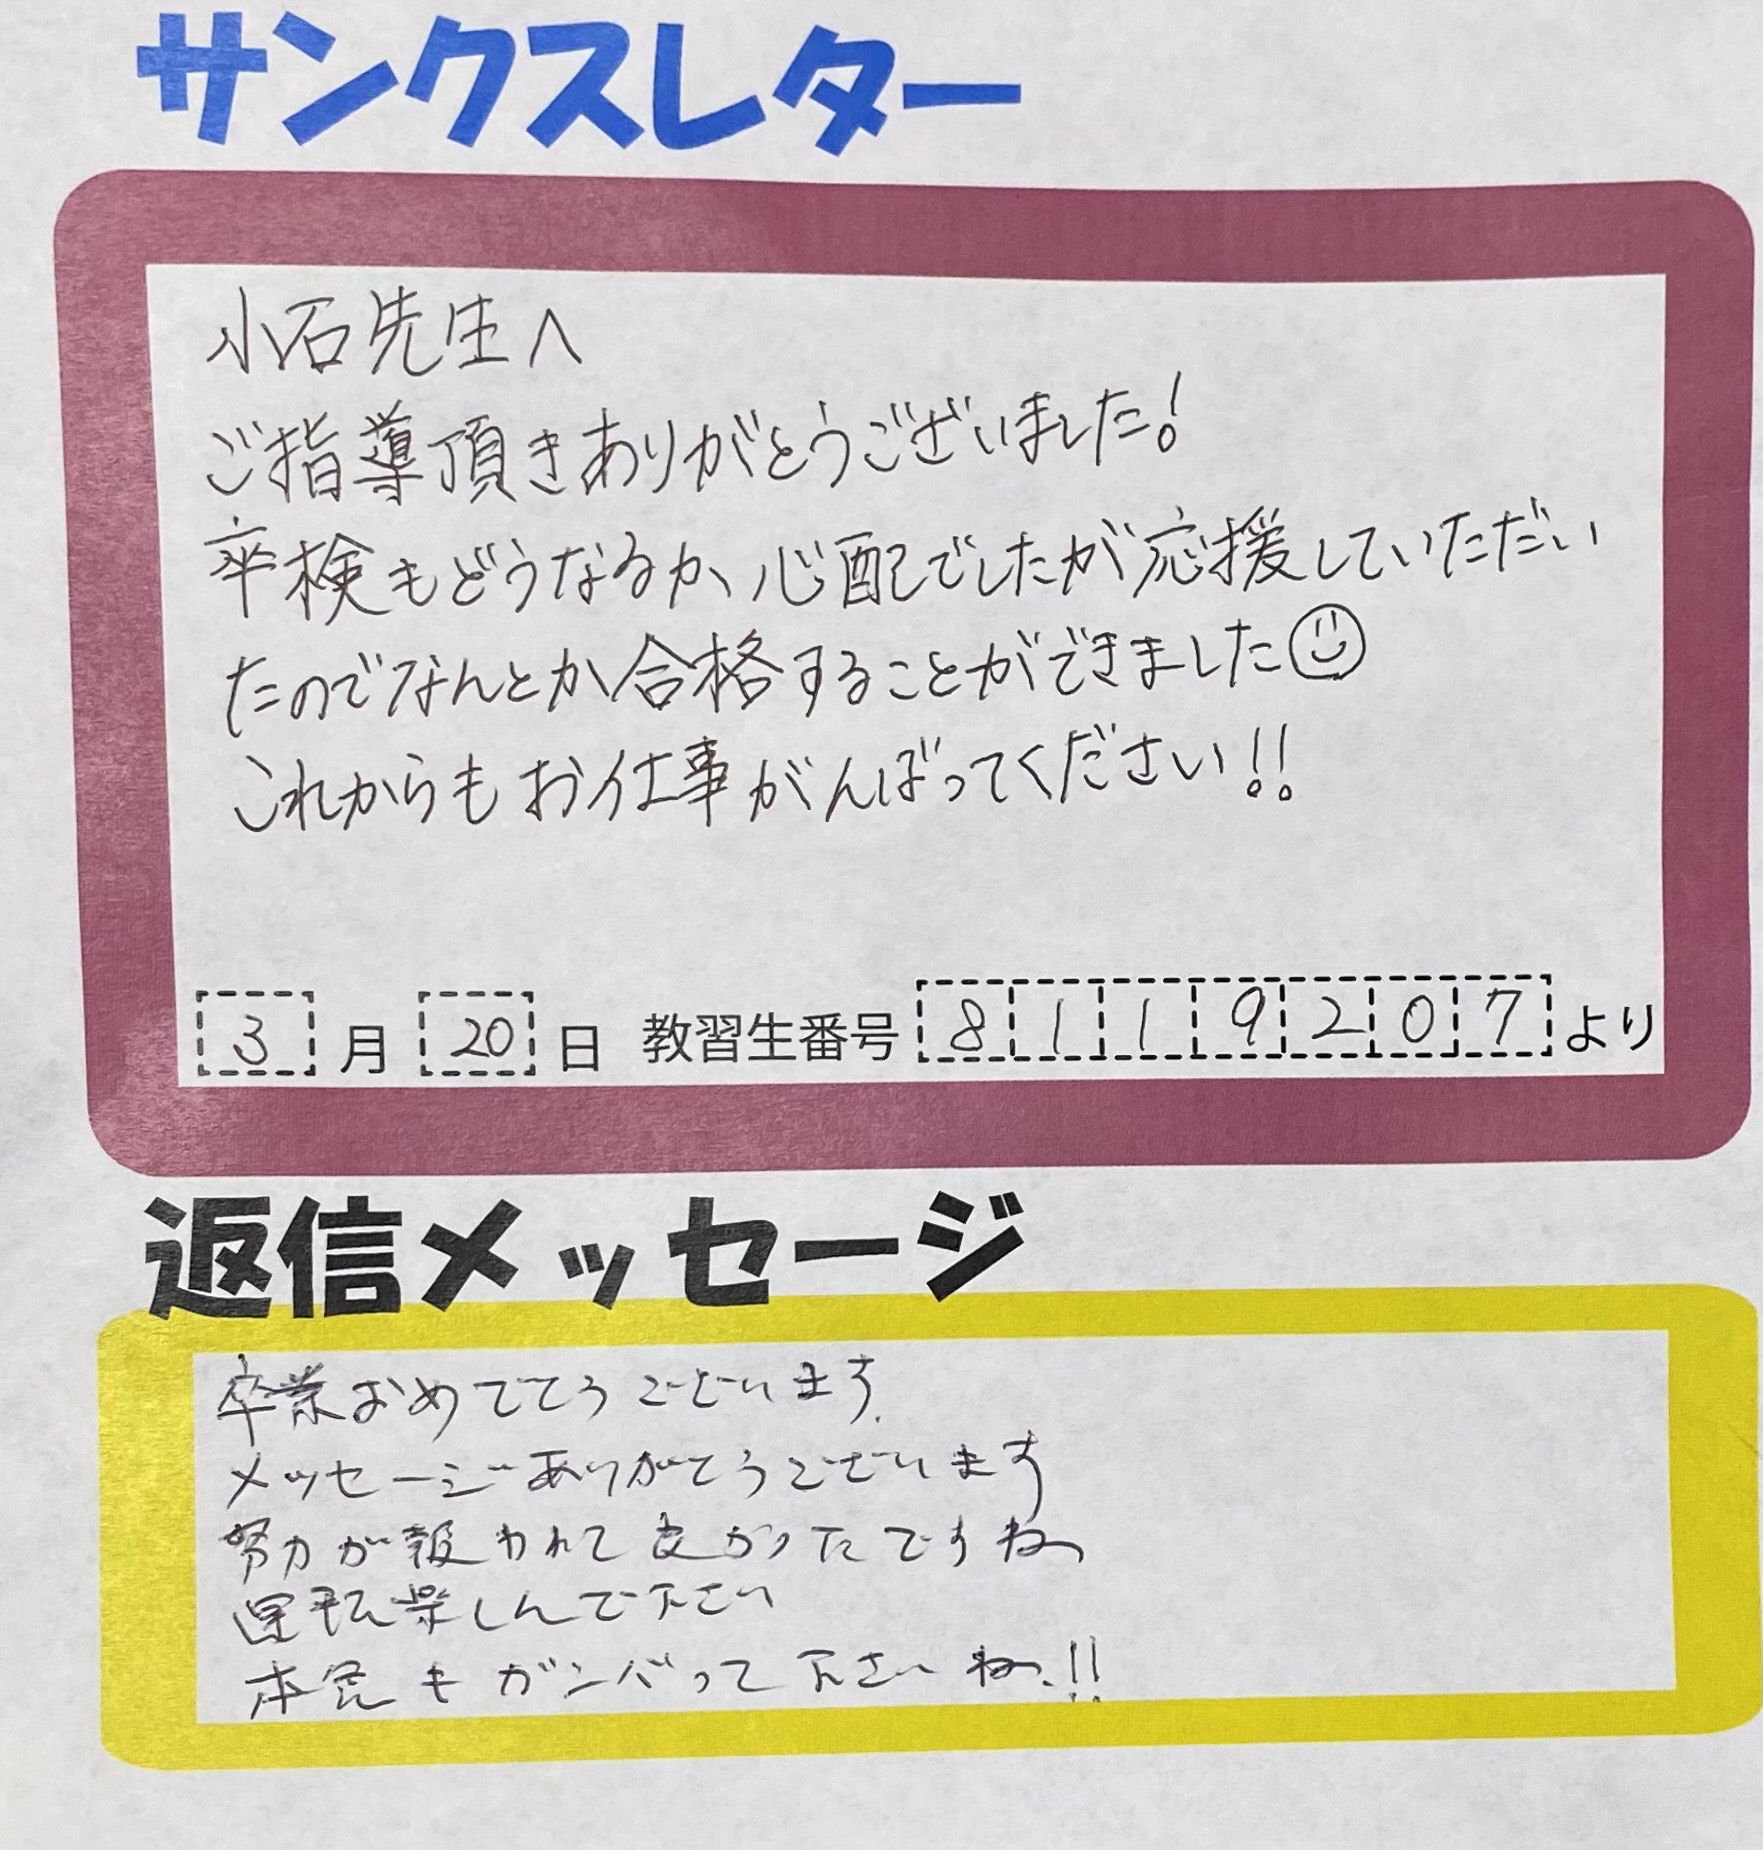 サンクスレター
小石先生へ
ご指導頂きありがとうございました!
卒検もどうなるか心配でしたが応援していただい
たのでなんとか合格することができました
これからもお仕事がんばってください!!
3月20日 教習生番号8119207より
返信メッセージ
卒業おめでとうございます.
メッセージありがとうございます
努力が報われて良かったですね
運転楽しんで下さい
本免もガンバって下さいね.!!